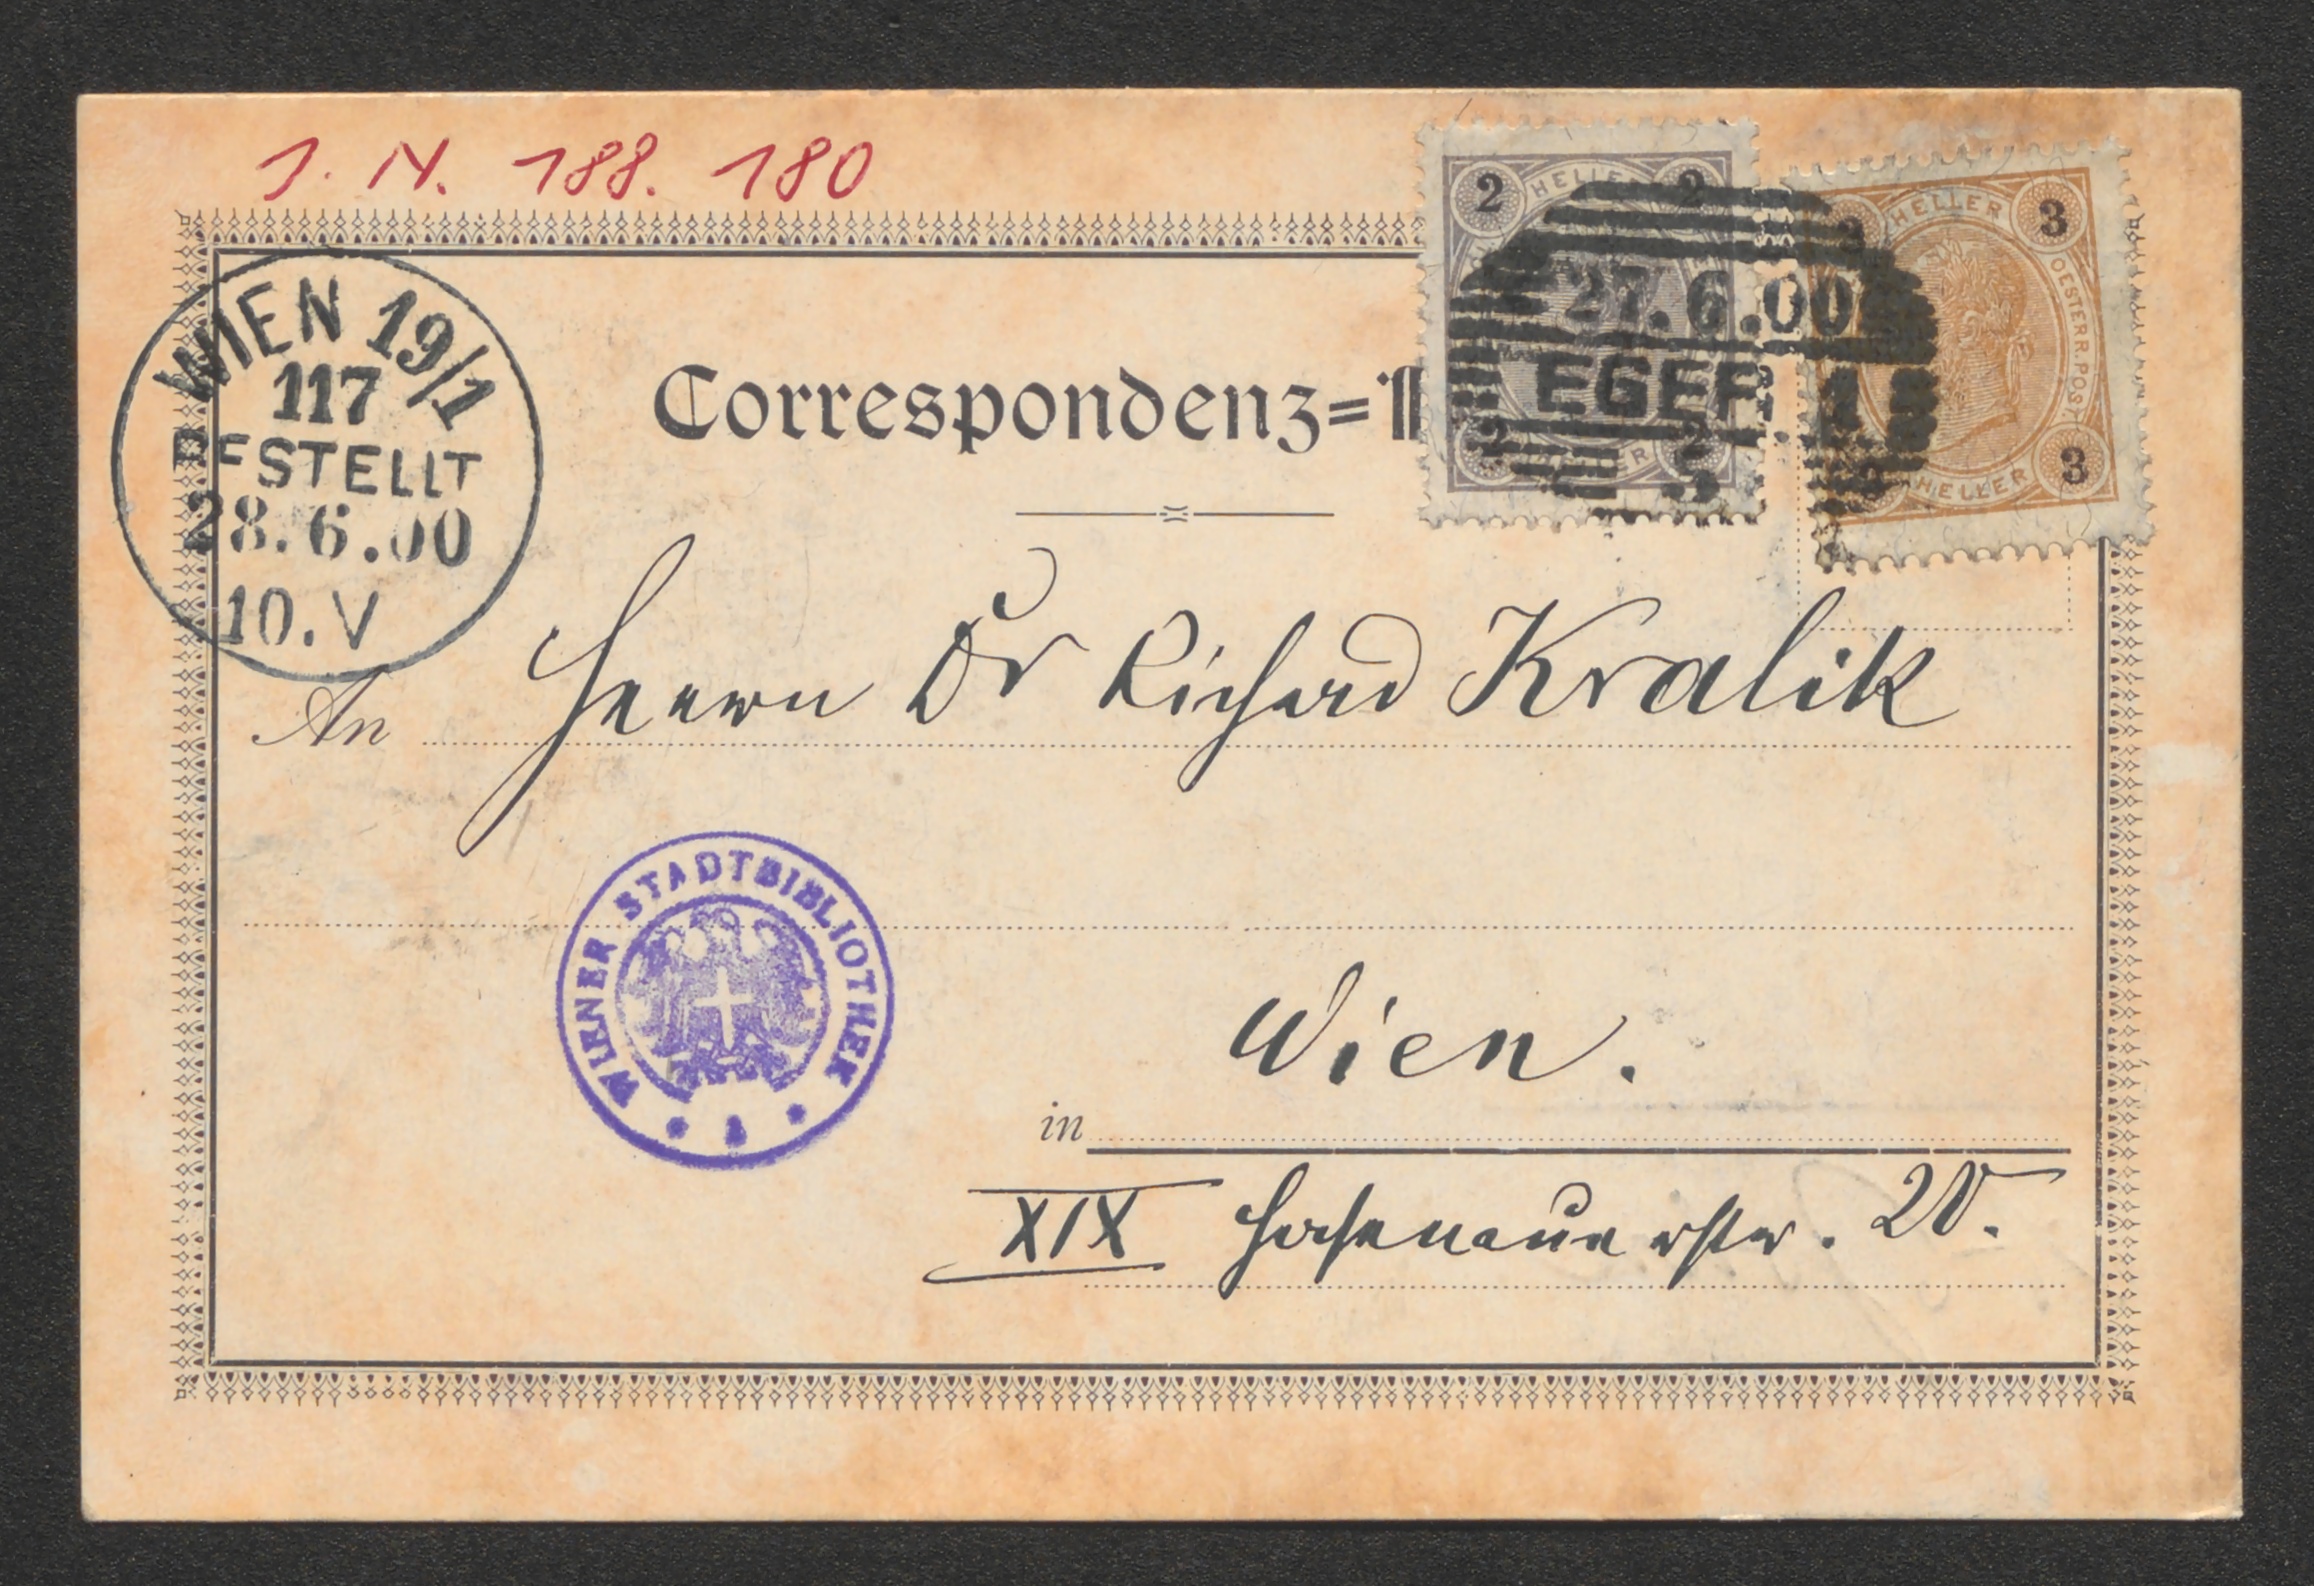 J. N. 188. 180
WIEN 19/1
117
BESTELLT
28.6.00
10.V
Correspondenz=
2 HELLER 2
2 2
3 HELLER 3
OESTERR. POST
HELLER 3
27.6.00
EGER 1
An Herrn Dr Richard Kralik
WIENER STADTBIBLIOTHEK
in Wien.
XIX Hasenauerstr. 20.